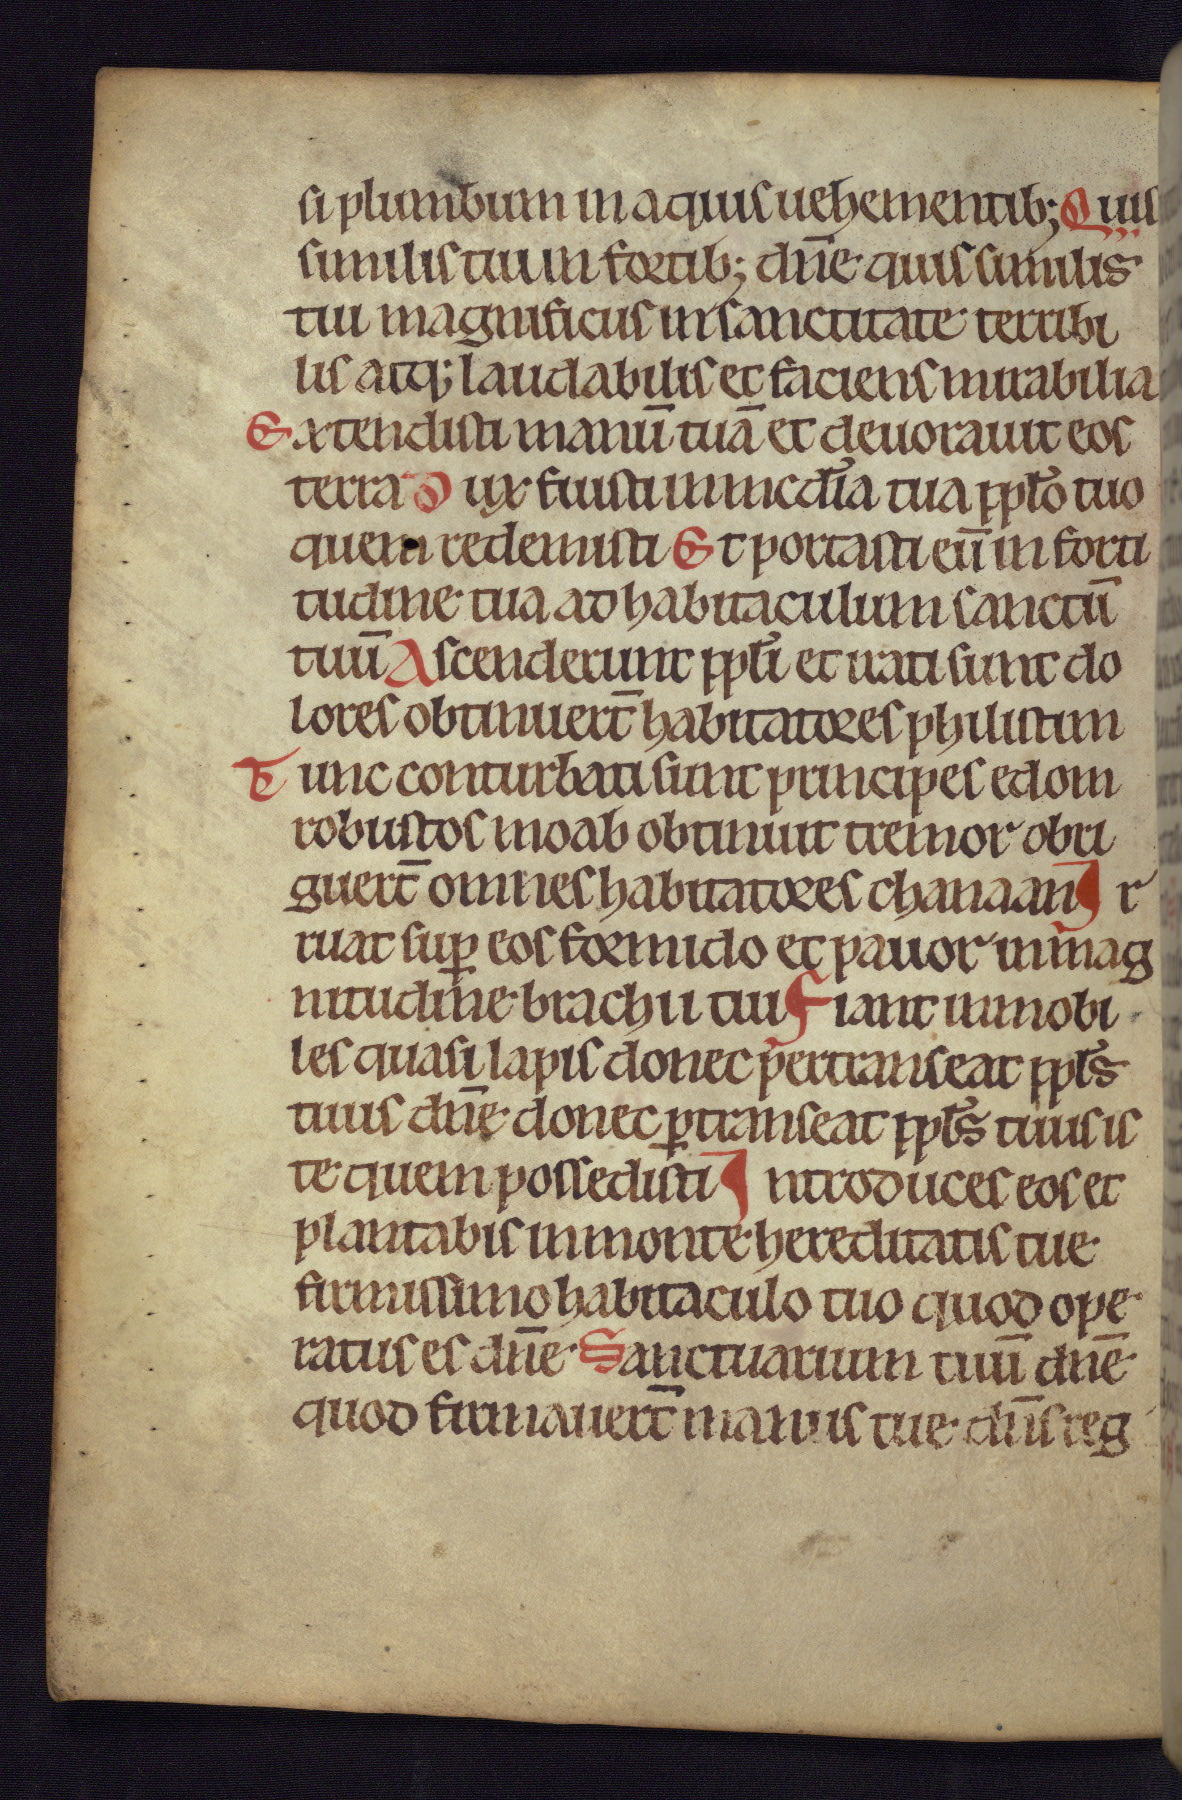 si plumbum in aquis uehementib; Quis
similis tui in fortib; dn̄e quis similis
tui magnificus in sanctitate terribi
lis atq; laudabilis et faciens mirabilia
Extendisti manū tuā et deuorauit eos
terra Dux fuisti in mcd̄ia tua ppl̄o tuo
quem redemisti Et portasti eū in forti
tudine tua ad habitaculum sanctū
tuū Ascenderunt ppl̄i et irati sunt do
lores obtinuert̄ habitatores philistim
Tunc conturbati sunt principes edom
robustos moab obtinuit tremor obri
guert̄ omnes habitatores chanaan Ir
ruat suꝑ eos formido et pauor in mag
nitudine brachii tui Fiant inmobi
les quasi lapis donec pertranseat ppl̄s
tuus dn̄e donec ꝑtranseat ppl̄s tuus is
te quem possedisti Introduces eos et
plantabis in monte hereditatis tue
firmissimo habitaculo tuo quod ope
ratus es dn̄e Sanctuarium tuū dn̄e
quod firmauert̄ manus tue dn̄s reg